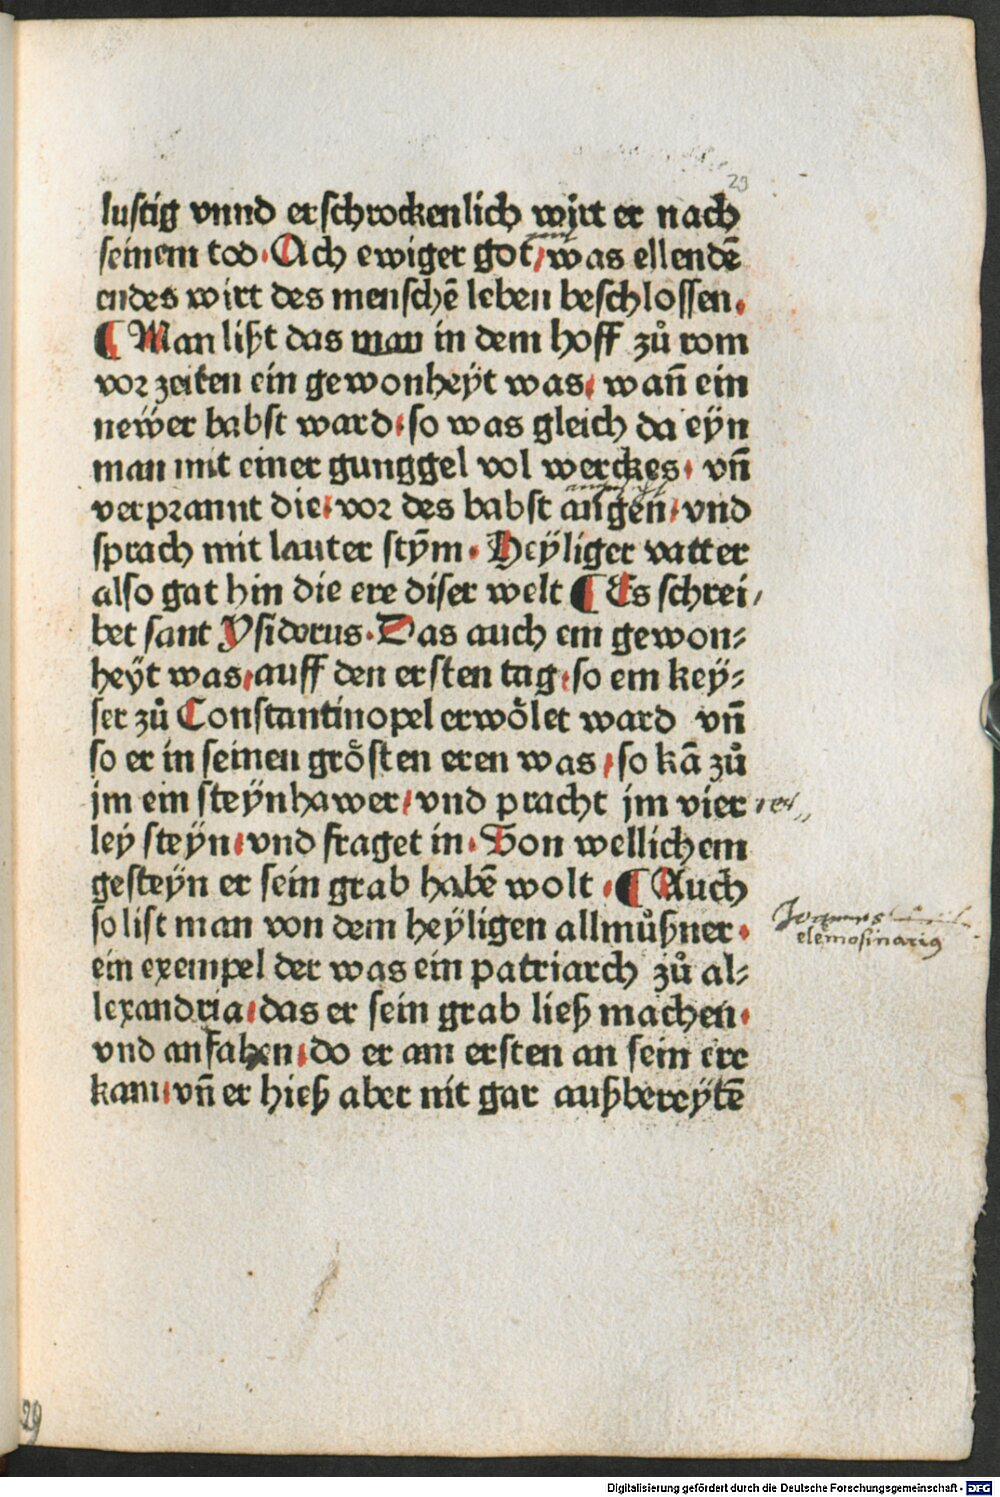 29
lustig vnnd erschrockenlich wirt er nach
seinem tod. Ach ewiger got/ was ellendē
endes wirt des menschē leben beschlossen.
¶ Man lißt das man in dem hoff zů rom
vor zeiten ein gewonheÿt was/ wañ ein
neẅer babst ward/ so was gleich da eÿn
man mit einer gunggel vol werckes. vñ
verprannt die/ vor des babst augen/ vnd
sprach mit lauter stym̄. Heÿliger vatter
also gat hin die ere diser welt ¶ Es schrei/
bet sant Ysidorus. Das auch ein gewon⸗
heÿt was/ auff den ersten tag/ so ein keÿ⸗
ser zů Constantinopel erwölet ward vñ
so er in seinen grösten eren was/ so kā zů
jm ein steÿnhawer/ vnd pracht jm vier
leÿ steÿn/ vnd fraget in. Von wellichem
gesteÿn er sein grab habē wolt. ¶ Auch
so list man von dem heÿligen allmůßner.
ein exempel der was ein patriarch zů al⸗
lexandria/ das er sein grab ließ machen.
vnd anfahen/ do er am ersten an sein ere
kam/ vñ er hieß aber nit gar außbereÿtē
Joannes
elemosinarius
29
Digitalisierung gefördert durch die Deutsche Forschungsgemeinschaft - DFG